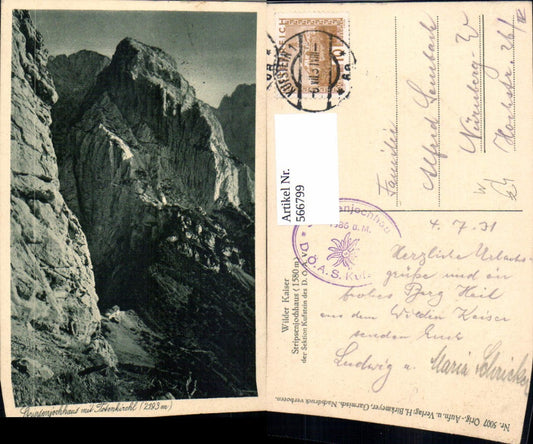 Stripsenjochhaus mit Totenkirchl (2193 m)
Artikel Nr.
566799
KUFSTEIN 1
Familie
Alfred
Nürnberg-W
W
4.7.31
Herzliche Urlaubs-
grüße und ein
frohes Berg Heil
aus dem Wilden Kaiser
senden Euch
Ludwig u. Maria
Wilder Kaiser
Stripsenjochhaus (1580 m)
der Sektion Kufstein des D. Ö. A. V.
Nr. 5007 Orig.-Aufn. u. Verlag H. Garmisch. Nachdruck verboten.